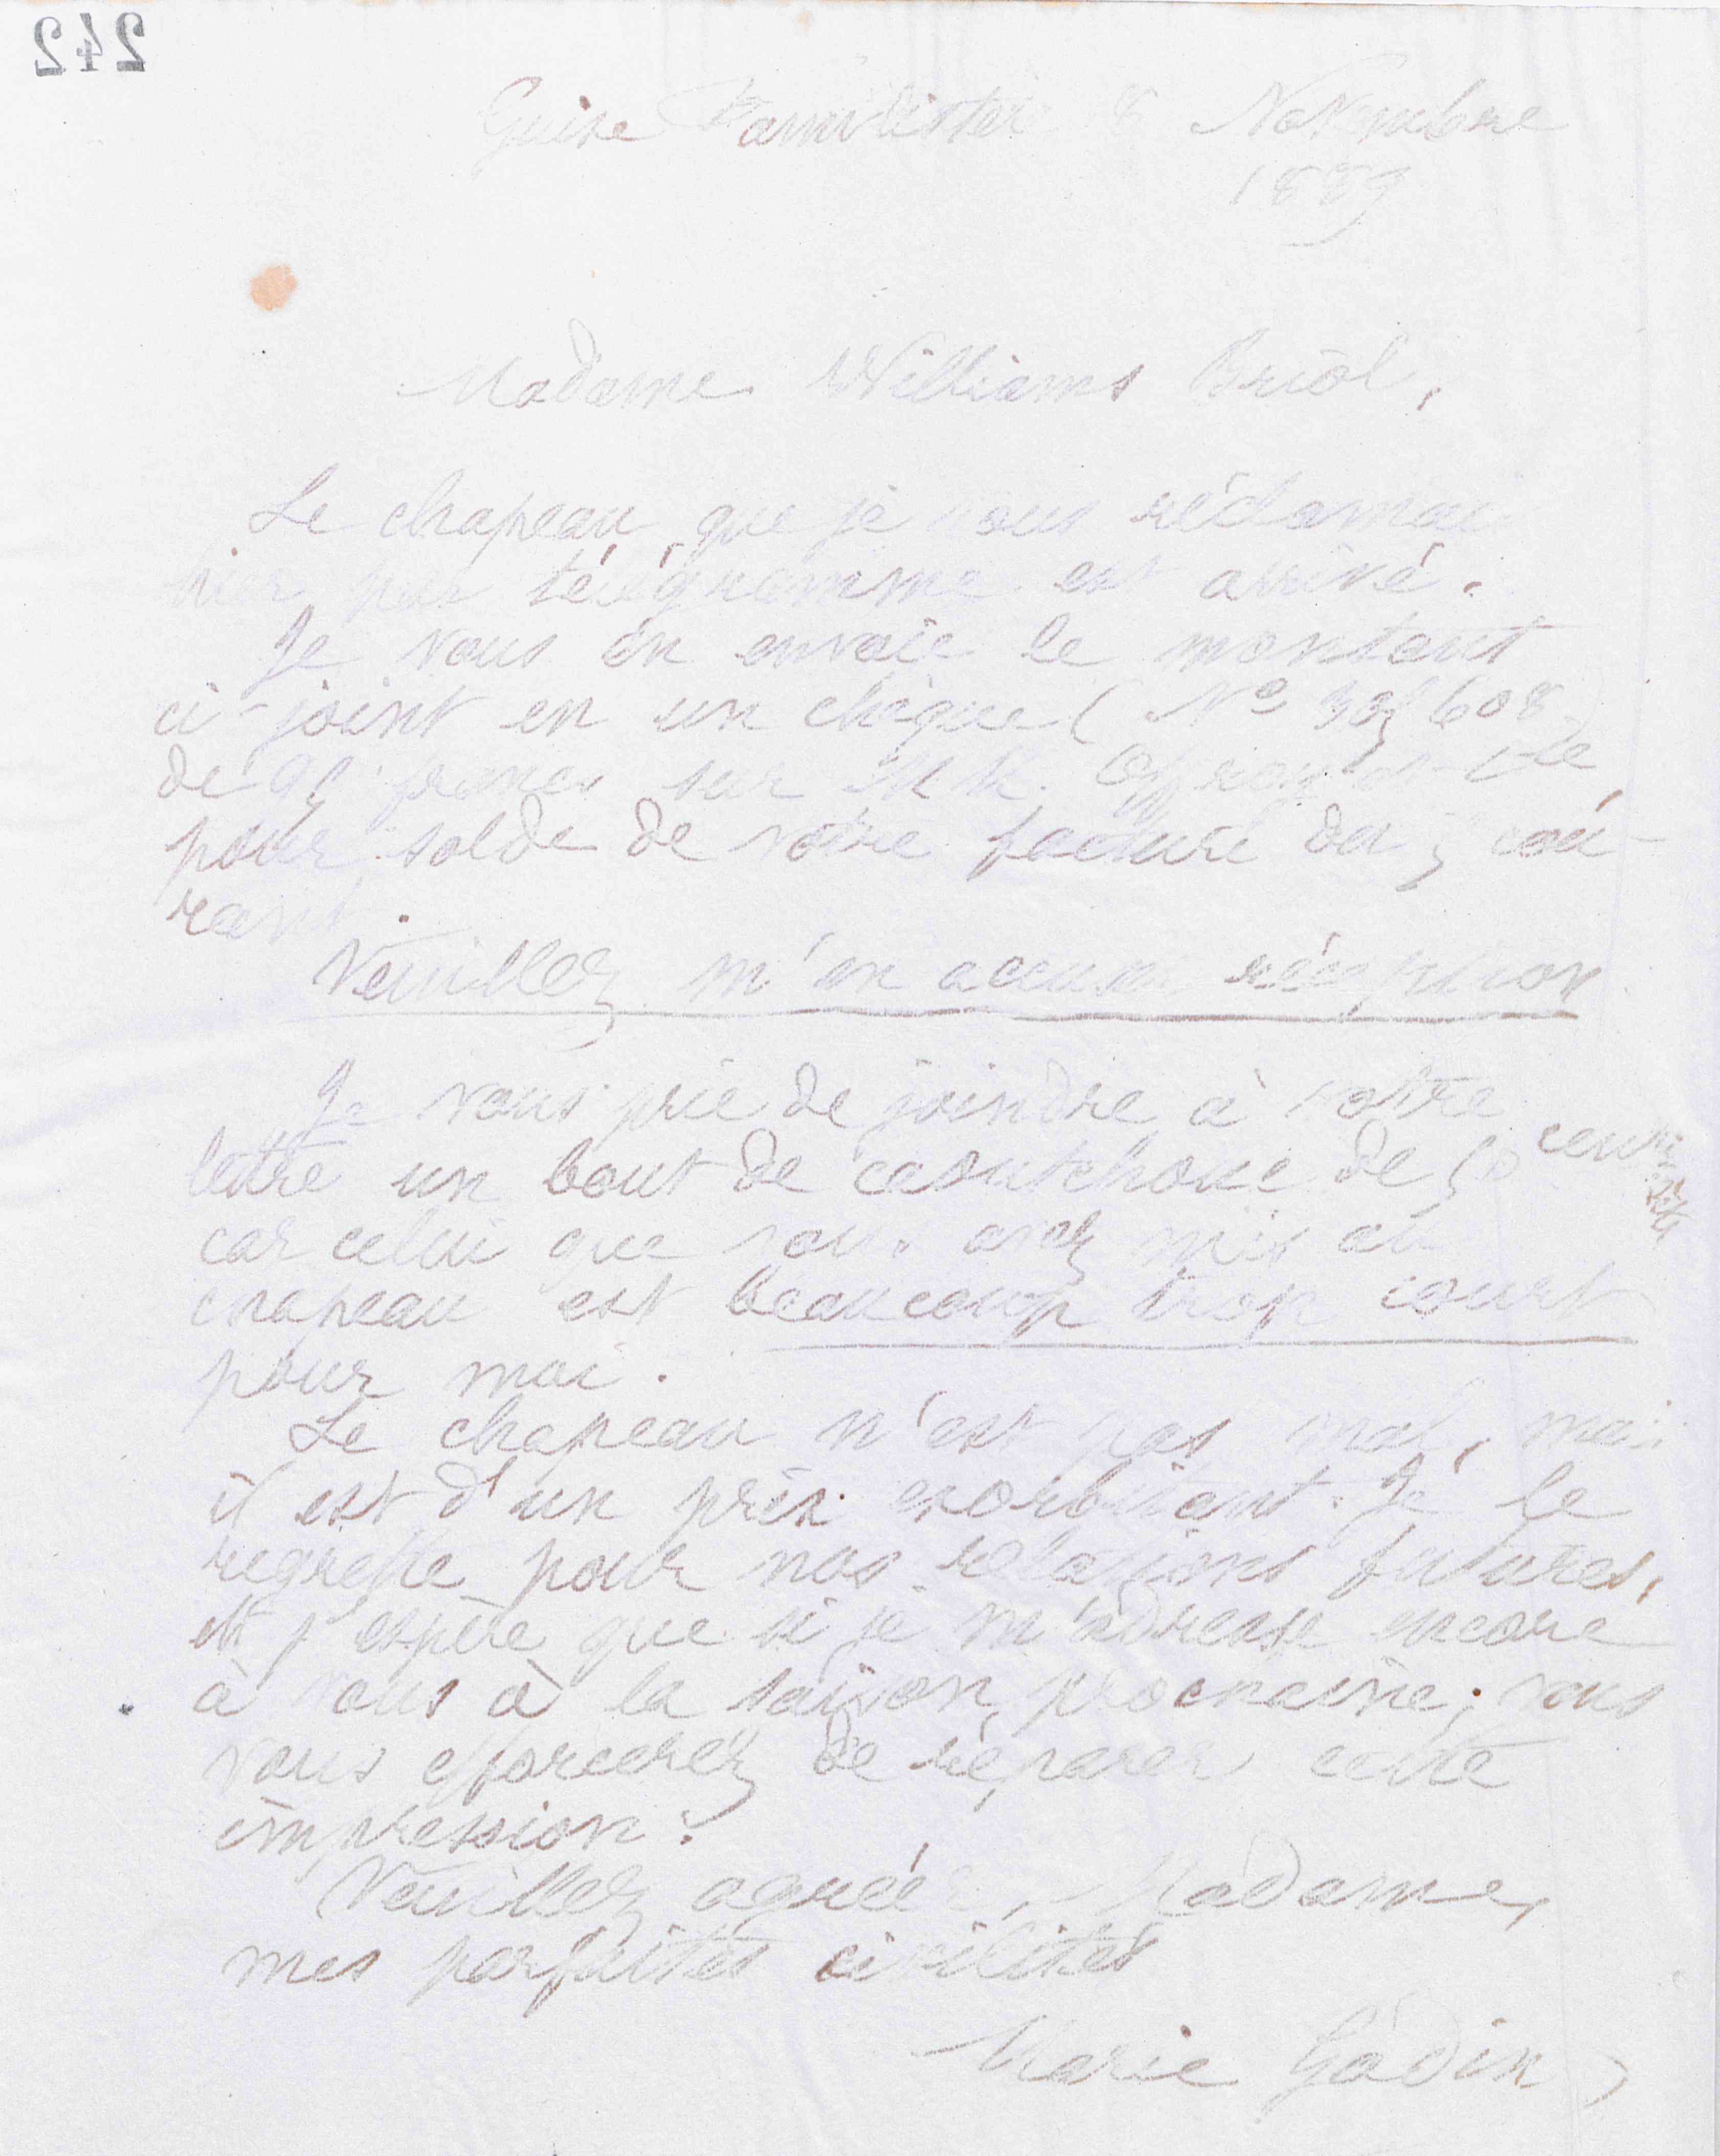 242
Guise Familistère 8 Novembre
1889
Madame Williams Briol,
Le chapeau que je vous réclamai
hier par télégramme est arrivé.
Je vous en envoie le montant
ci-joint en un chèque (N°
de francs sur MM. Offroy et Cie
pour solde de votre facture du 5 cou-
rant.
Veuillez m'en accuser réception
Je vous prie de joindre à votre
lettre un bout de caoutchouc de 50 centi
car celui que vous avez mis au
chapeau est beaucoup trop court
pour moi.
Le chapeau n'est pas mal, mais
il est d'un prix exorbitant. Je le
regrette pour nos relations futures,
et j'espère que si je m'adresse encore
à vous à la saison prochaine, vous
vous efforcerez de réparer cette
impression.
Veuillez agréer, Madame,
mes parfaites civilités
Marie Godin